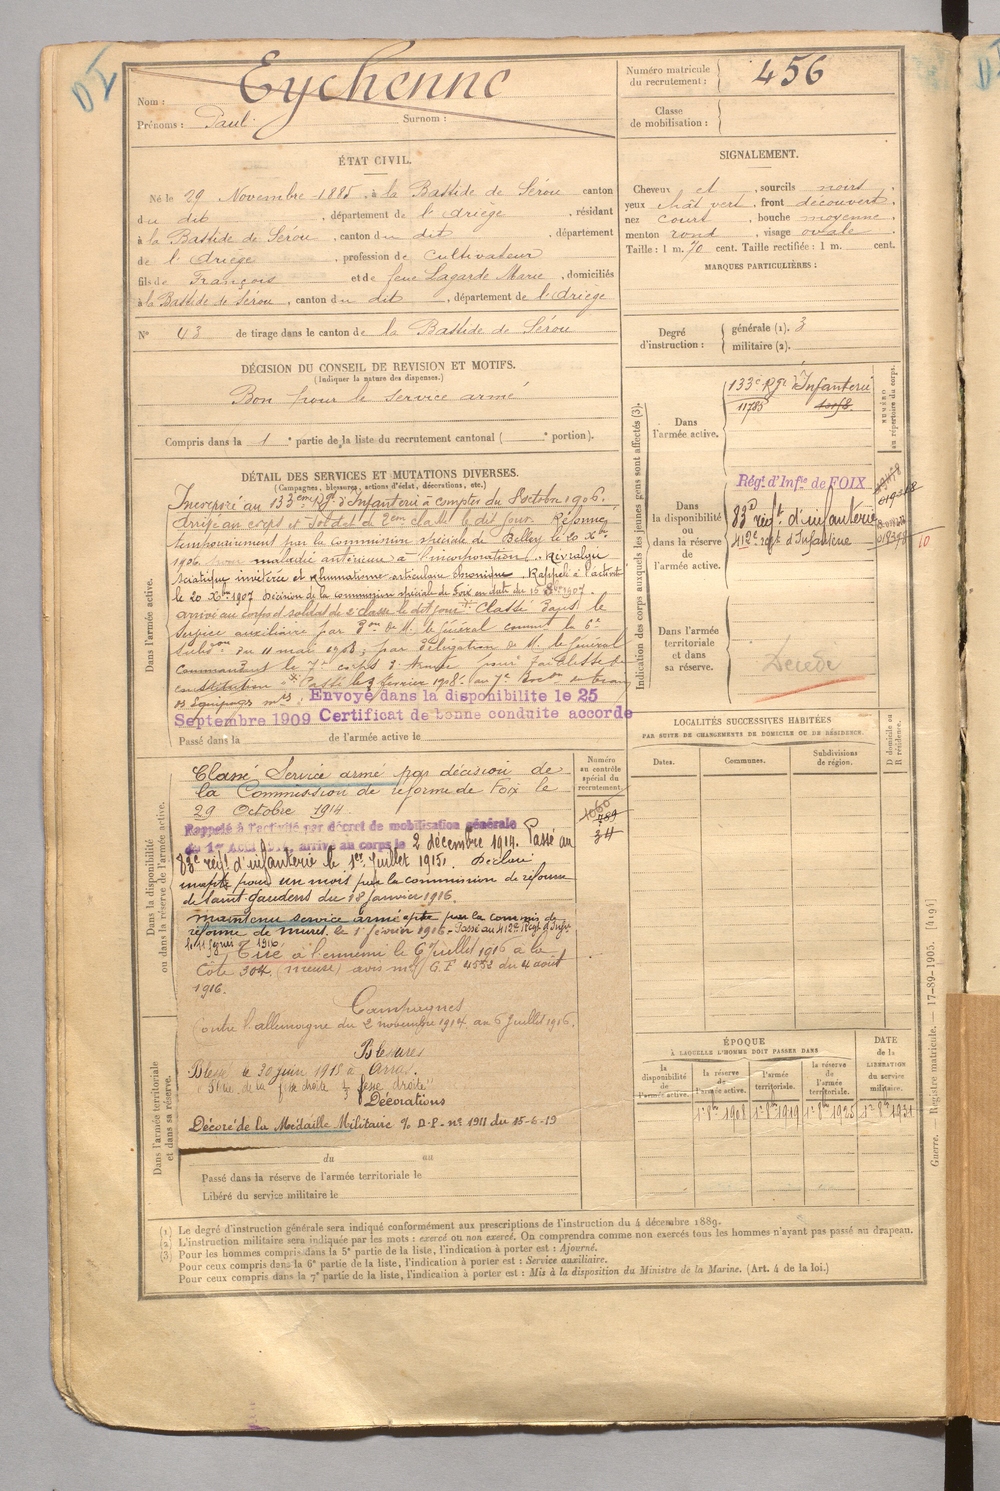 Nom : Eychenne
Prénoms : Paul Surnom :
Numéro matricule du recrutement : 456
Classe de mobilisation :
ÉTAT CIVIL.
Né le 29 Novembre 1885, à la Bastide de Sérou canton
du dit, département de l'Ariège, résidant
à la Bastide de Sérou, canton du dit, département
de l'Ariège, profession de cultivateur
fils de François et de feue Lagarde Marie, domiciliés
à la Bastide de Sérou, canton du dit, département de l'Ariège
N° 43 de tirage dans le canton de la Bastide de Sérou
SIGNALEMENT.
Cheveux et, sourcils noirs.
yeux chât vert, front découvert
nez court, bouche moyenne
menton rond, visage ovale
Taille : 1 m. 70 cent. Taille rectifiée : 1 m. cent.
MARQUES PARTICULIÈRES :
Degré d'instruction : générale (1). 3
militaire (2).
DÉCISION DU CONSEIL DE REVISION ET MOTIFS.
(Indiquer la nature des dispenses.)
Bon pour le service armé
Compris dans la 1 e partie de la liste du recrutement cantonal ( e portion).
DÉTAIL DES SERVICES ET MUTATIONS DIVERSES.
(Campagnes, blessures, actions d'éclat, décorations, etc.)
Dans l'armée active.
Incorporé au 133eme Rgt d'Infanterie à compter du 8 octobre 1906.
Arrivé au corps et soldat de 2eme classe le dit jour. Réformé
temporairement par la commission spéciale de Belley le 20 Xbre
1906 pour maladie antérieure à l'incorporation. Névralgie
sciatique invétérée et rhumatisme articulaire chronique. Rappelé à l'activité
le 20 Xbre 1907 décision de la commission spéciale de Foix en date du 15
arrivé au corps et soldat de 2e classe le dit jour. Classé dans le
service auxiliaire par de M. le Général comt la 6e
du 11 mai 1908, par délégation de M. le Général
commandant le 7e corps d'Armée pour faiblesse de
constitution. Passé le février 1908 au 7e
des équipages mres Envoyé dans la disponibilité le 25
Septembre 1909 Certificat de bonne conduite accordé
Passé dans la de l'armée active le
Indication des corps auxquels les jeunes gens sont affectés (3).
NUMÉRO au répertoire du corps.
Dans l'armée active.
133e Rgt d'Infanterie
11785
Dans la disponibilité ou dans la réserve de l'armée active.
Régt d'Infie de FOIX
83e régt d'infanterie
412e régt d'Infanterie
10
Dans l'armée territoriale et dans sa réserve.
Décédé
LOCALITÉS SUCCESSIVES HABITÉES
PAR SUITE DE CHANGEMENTS DE DOMICILE OU DE RÉSIDENCE.
D domicile ou R résidence.
Dates. Communes. Subdivisions de région.
Numéro au contrôle spécial du recrutement.
1060
789
34
Dans la disponibilité ou dans la réserve de l'armée active.
Classé Service armé par décision de
la Commission de réforme de Foix le
29 Octobre 1914
Rappelé à l'activité par décret de mobilisation générale
du 1er Août 1914, arrivé au corps le 2 décembre 1914. Passé au
83e régt d'infanterie le 1er Juillet 1915. Déclaré
inapte pour un mois par la commission de réforme
de Saint-Gaudens du 18 janvier 1916.
Maintenu service armé apte par la commis de
réforme de Muret le 1er février 1916 - Passé au 412e Régt d'Infie
le 11 1916
Tué à l'ennemi le 6 Juillet 1916 à la
Côte 304 (Meuse) avis mel G.F 4552 du 4 août
1916.
Campagnes
Contre l'allemagne du 2 novembre 1914 au 6 Juillet 1916.
Dans l'armée territoriale et dans sa réserve.
Blessures
Blessé le 20 juin 1915 à Arras.
de la fesse droite
Décorations
Décoré de la Médaille Militaire % D.P. n° 1911 du 15-6-19
du au
Passé dans la réserve de l'armée territoriale le
Libéré du service militaire le
ÉPOQUE
À LAQUELLE L'HOMME DOIT PASSER DANS
DATE de la LIBÉRATION du service militaire.
la disponibilité de l'armée active. la réserve de l'armée active. l'armée territoriale. la réserve de l'armée territoriale.
1er 8bre 1908 1er 8bre 1919 1er 8bre 1925 1er 8bre 1931
Guerre. — Registre matricule. — 17-89-1905. [4194]
(1) Le degré d'instruction générale sera indiqué conformément aux prescriptions de l'instruction du 4 décembre 1889.
(2) L'instruction militaire sera indiquée par les mots : exercé ou non exercé. On comprendra comme non exercés tous les hommes n'ayant pas passé au drapeau.
(3) Pour les hommes compris dans la 5e partie de la liste, l'indication à porter est : Ajourné.
Pour ceux compris dans la 6e partie de la liste, l'indication à porter est : Service auxiliaire.
Pour ceux compris dans la 7e partie de la liste, l'indication à porter est : Mis à la disposition du Ministre de la Marine. (Art. 4 de la loi.)